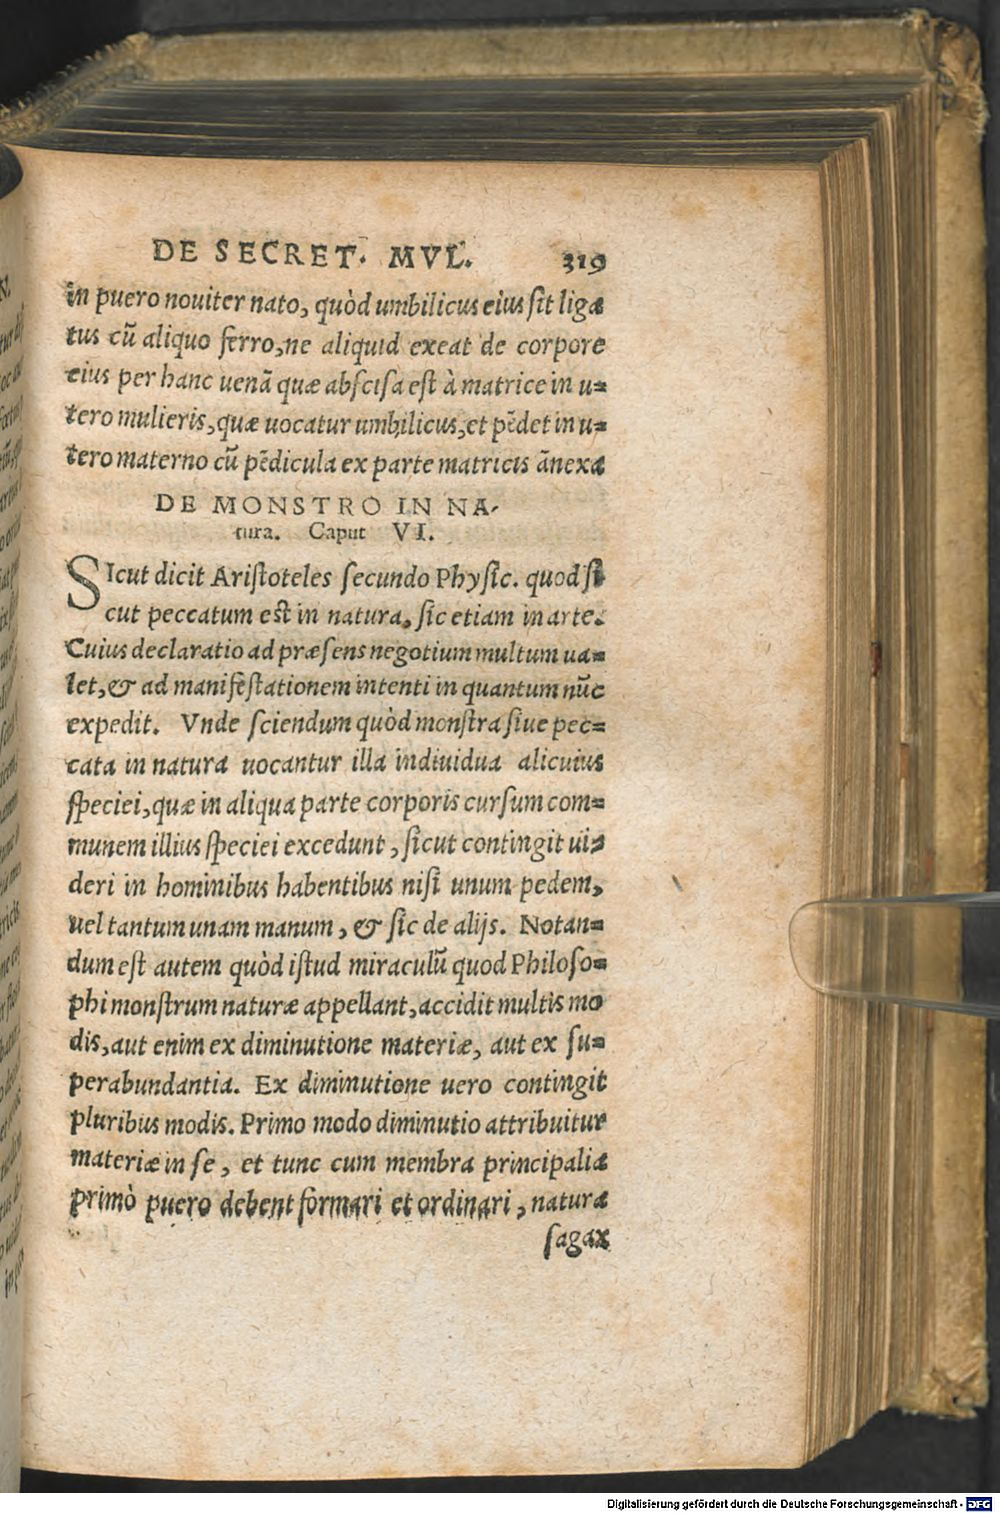 DE SECRET. MVL. 319
in puero nouiter nato, quòd umbilicus eius sit liga
tus cũ aliquo ferro, ne aliquid exeat de corpore
eius per hanc uenã quæ abscisa est à matrice in u=
tero mulieris, quæ uocatur umbilicus, et pẽdet in u=
tero materno cũ pẽdicula ex parte matricis ãnexa
DE MONSTRO IN NA-
tura. Caput VI.
SIcut dicit Aristoteles secundo Physic. quod si
cut peccatum est in natura, sic etiam in arte.
Cuius declaratio ad præsens negotium multum ua=
let, & ad manifestationem intenti in quantum nũc
expedit. Vnde sciendum quòd monstra siue pec=
cata in natura uocantur illa indiuidua alicuius
speciei, quæ in aliqua parte corporis cursum com=
munem illius speciei excedunt, sicut contingit ui=
deri in hominibus habentibus nisi unum pedem,
uel tantum unam manum, & sic de alijs. Notan=
dum est autem quòd istud miraculũ quod Philoso=
phi monstrum naturæ appellant, accidit multis mo
dis, aut enim ex diminutione materiæ, aut ex su=
perabundantia. Ex diminutione uero contingit
pluribus modis. Primo modo diminutio attribuitur
materiæ in se, et tunc cum membra principalia
primò puero debent formari et ordinari, natura
sagax
Digitalisierung gefördert durch die Deutsche Forschungsgemeinschaft - DFG